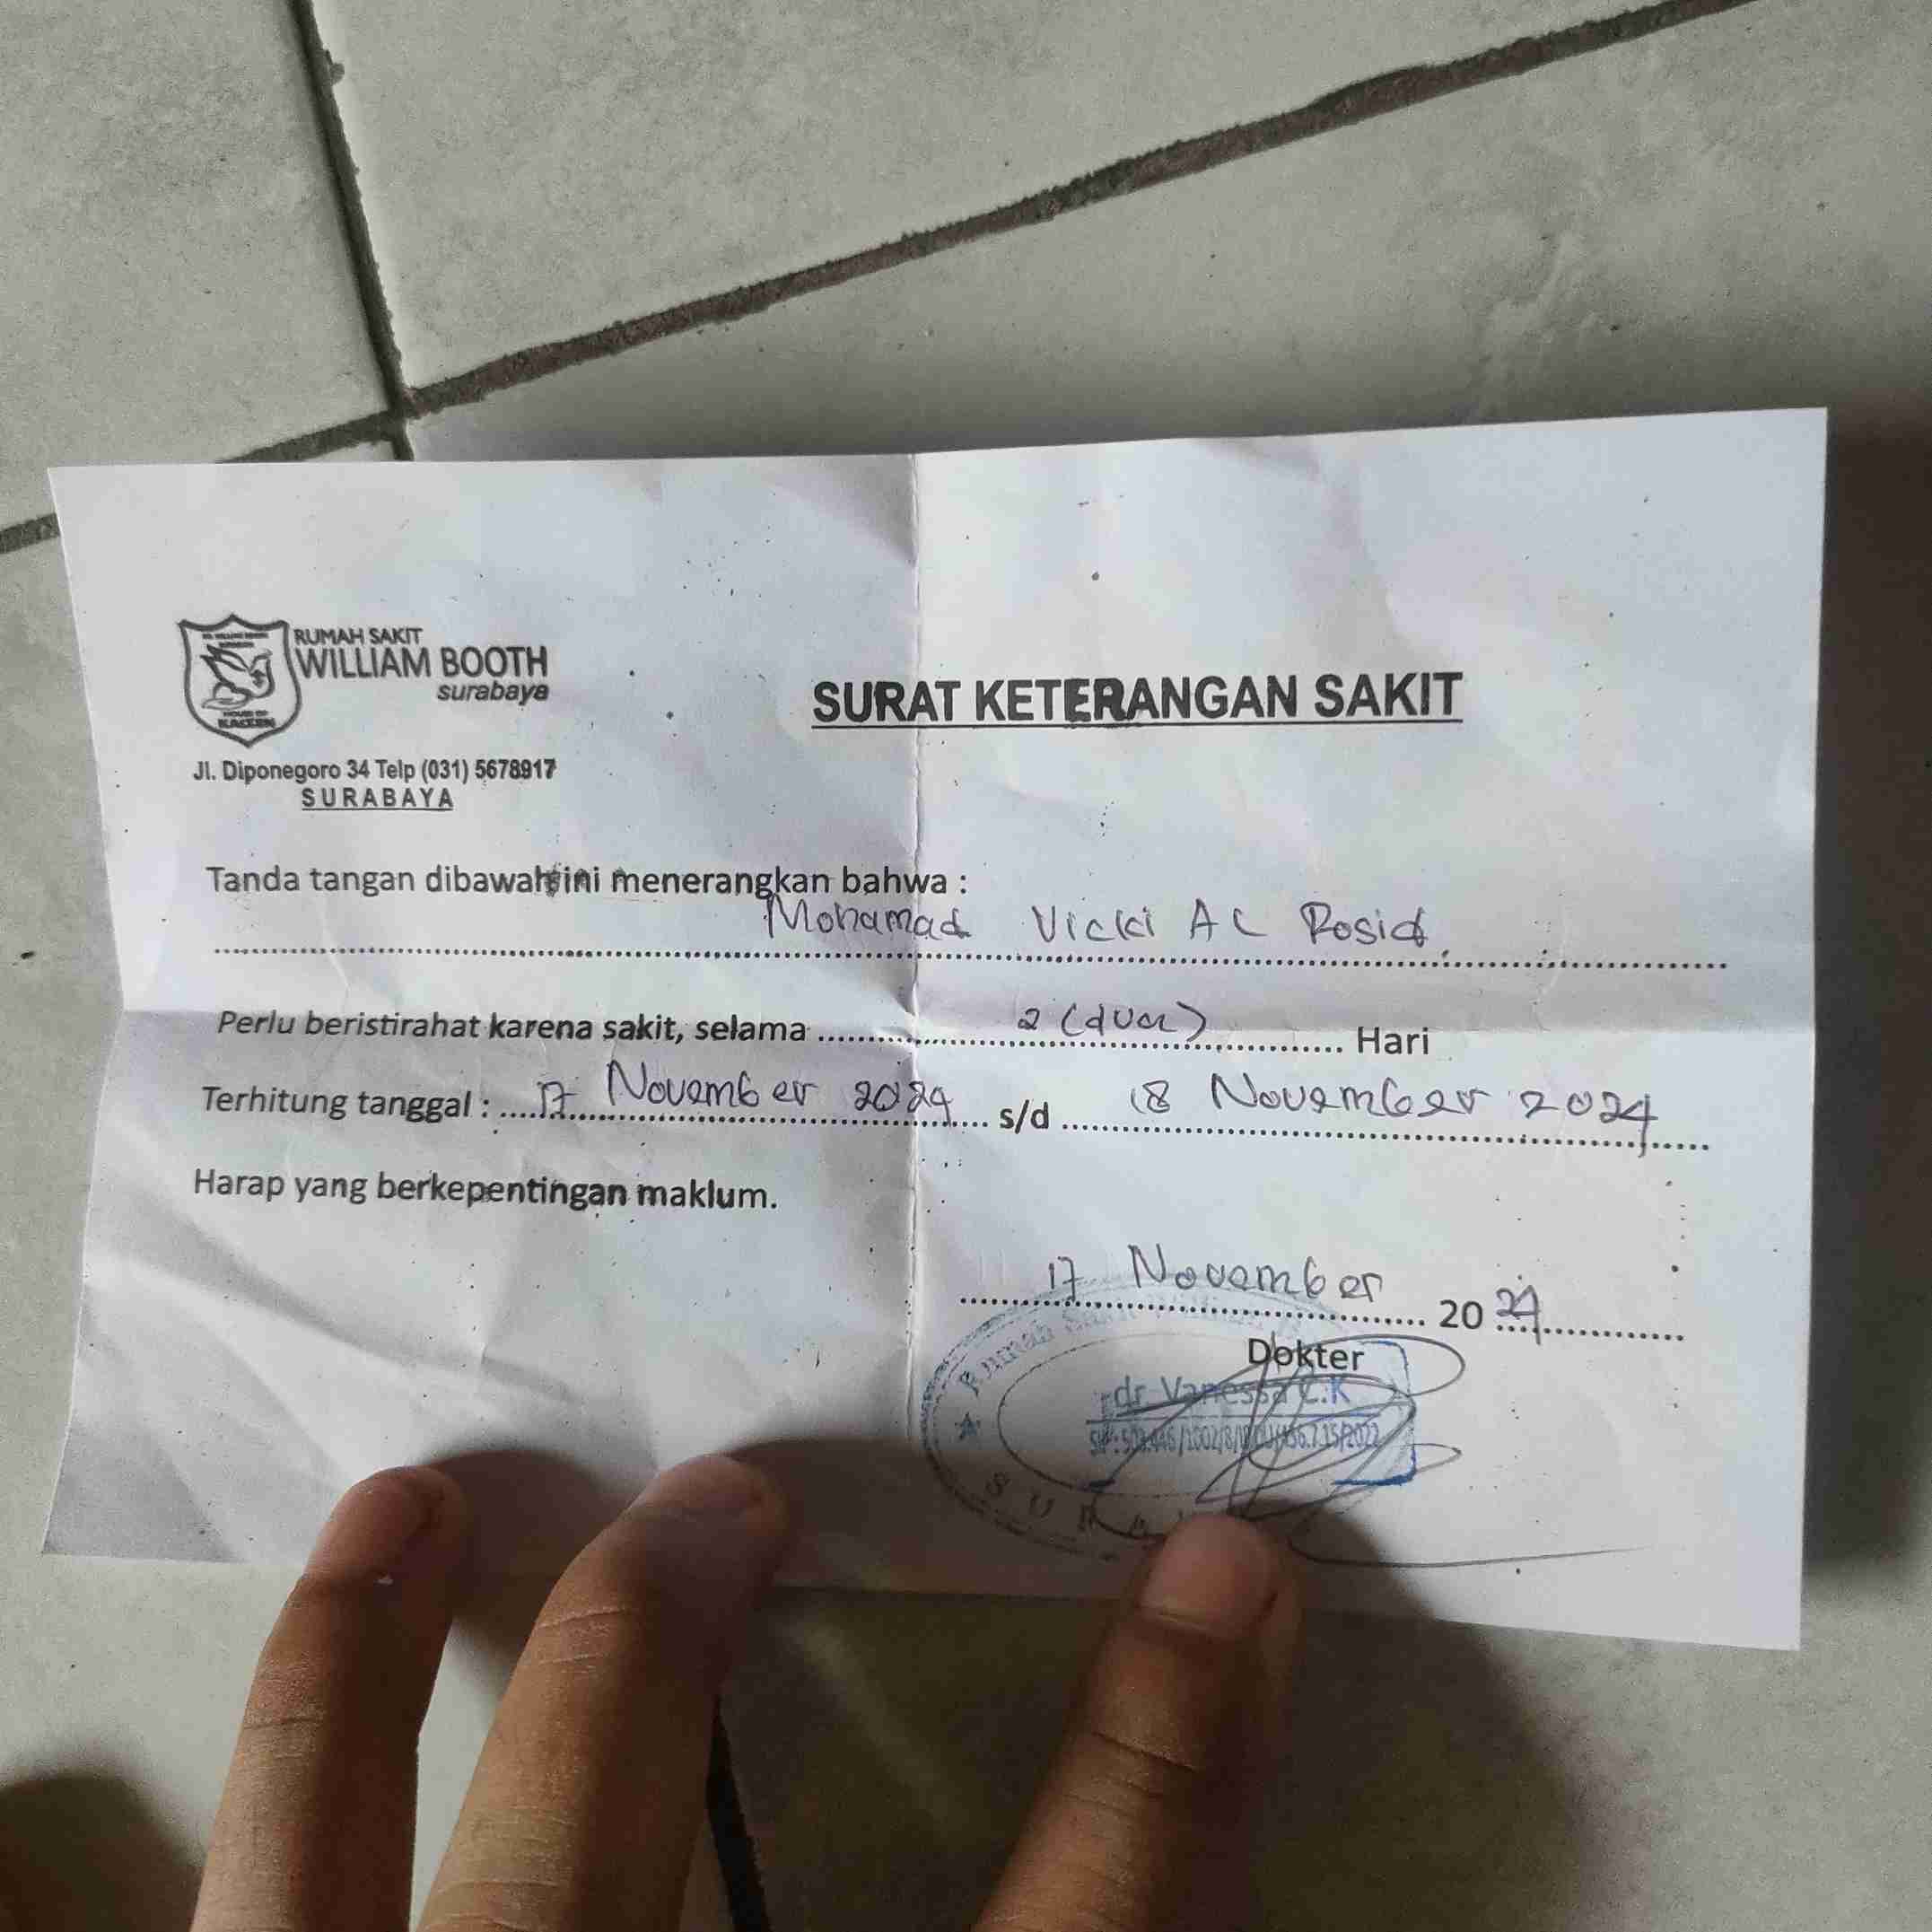 RUMAH SAKIT
WILLIAM BOOTH
surabaya
Jl. Diponegoro 34 Telp (031) 5678917
SURABAYA
SURAT KETERANGAN SAKIT
Tanda tangan dibawah ini menerangkan bahwa :
Mohamad Vicki AL Rosid
Perlu beristirahat karena sakit, selama 2 (dua) Hari
Terhitung tanggal : 17 November 2024 s/d 18 November 2024
Harap yang berkepentingan maklum.
17 November 2024
Dokter
dr Vanessa C.K
Rumah Sakit